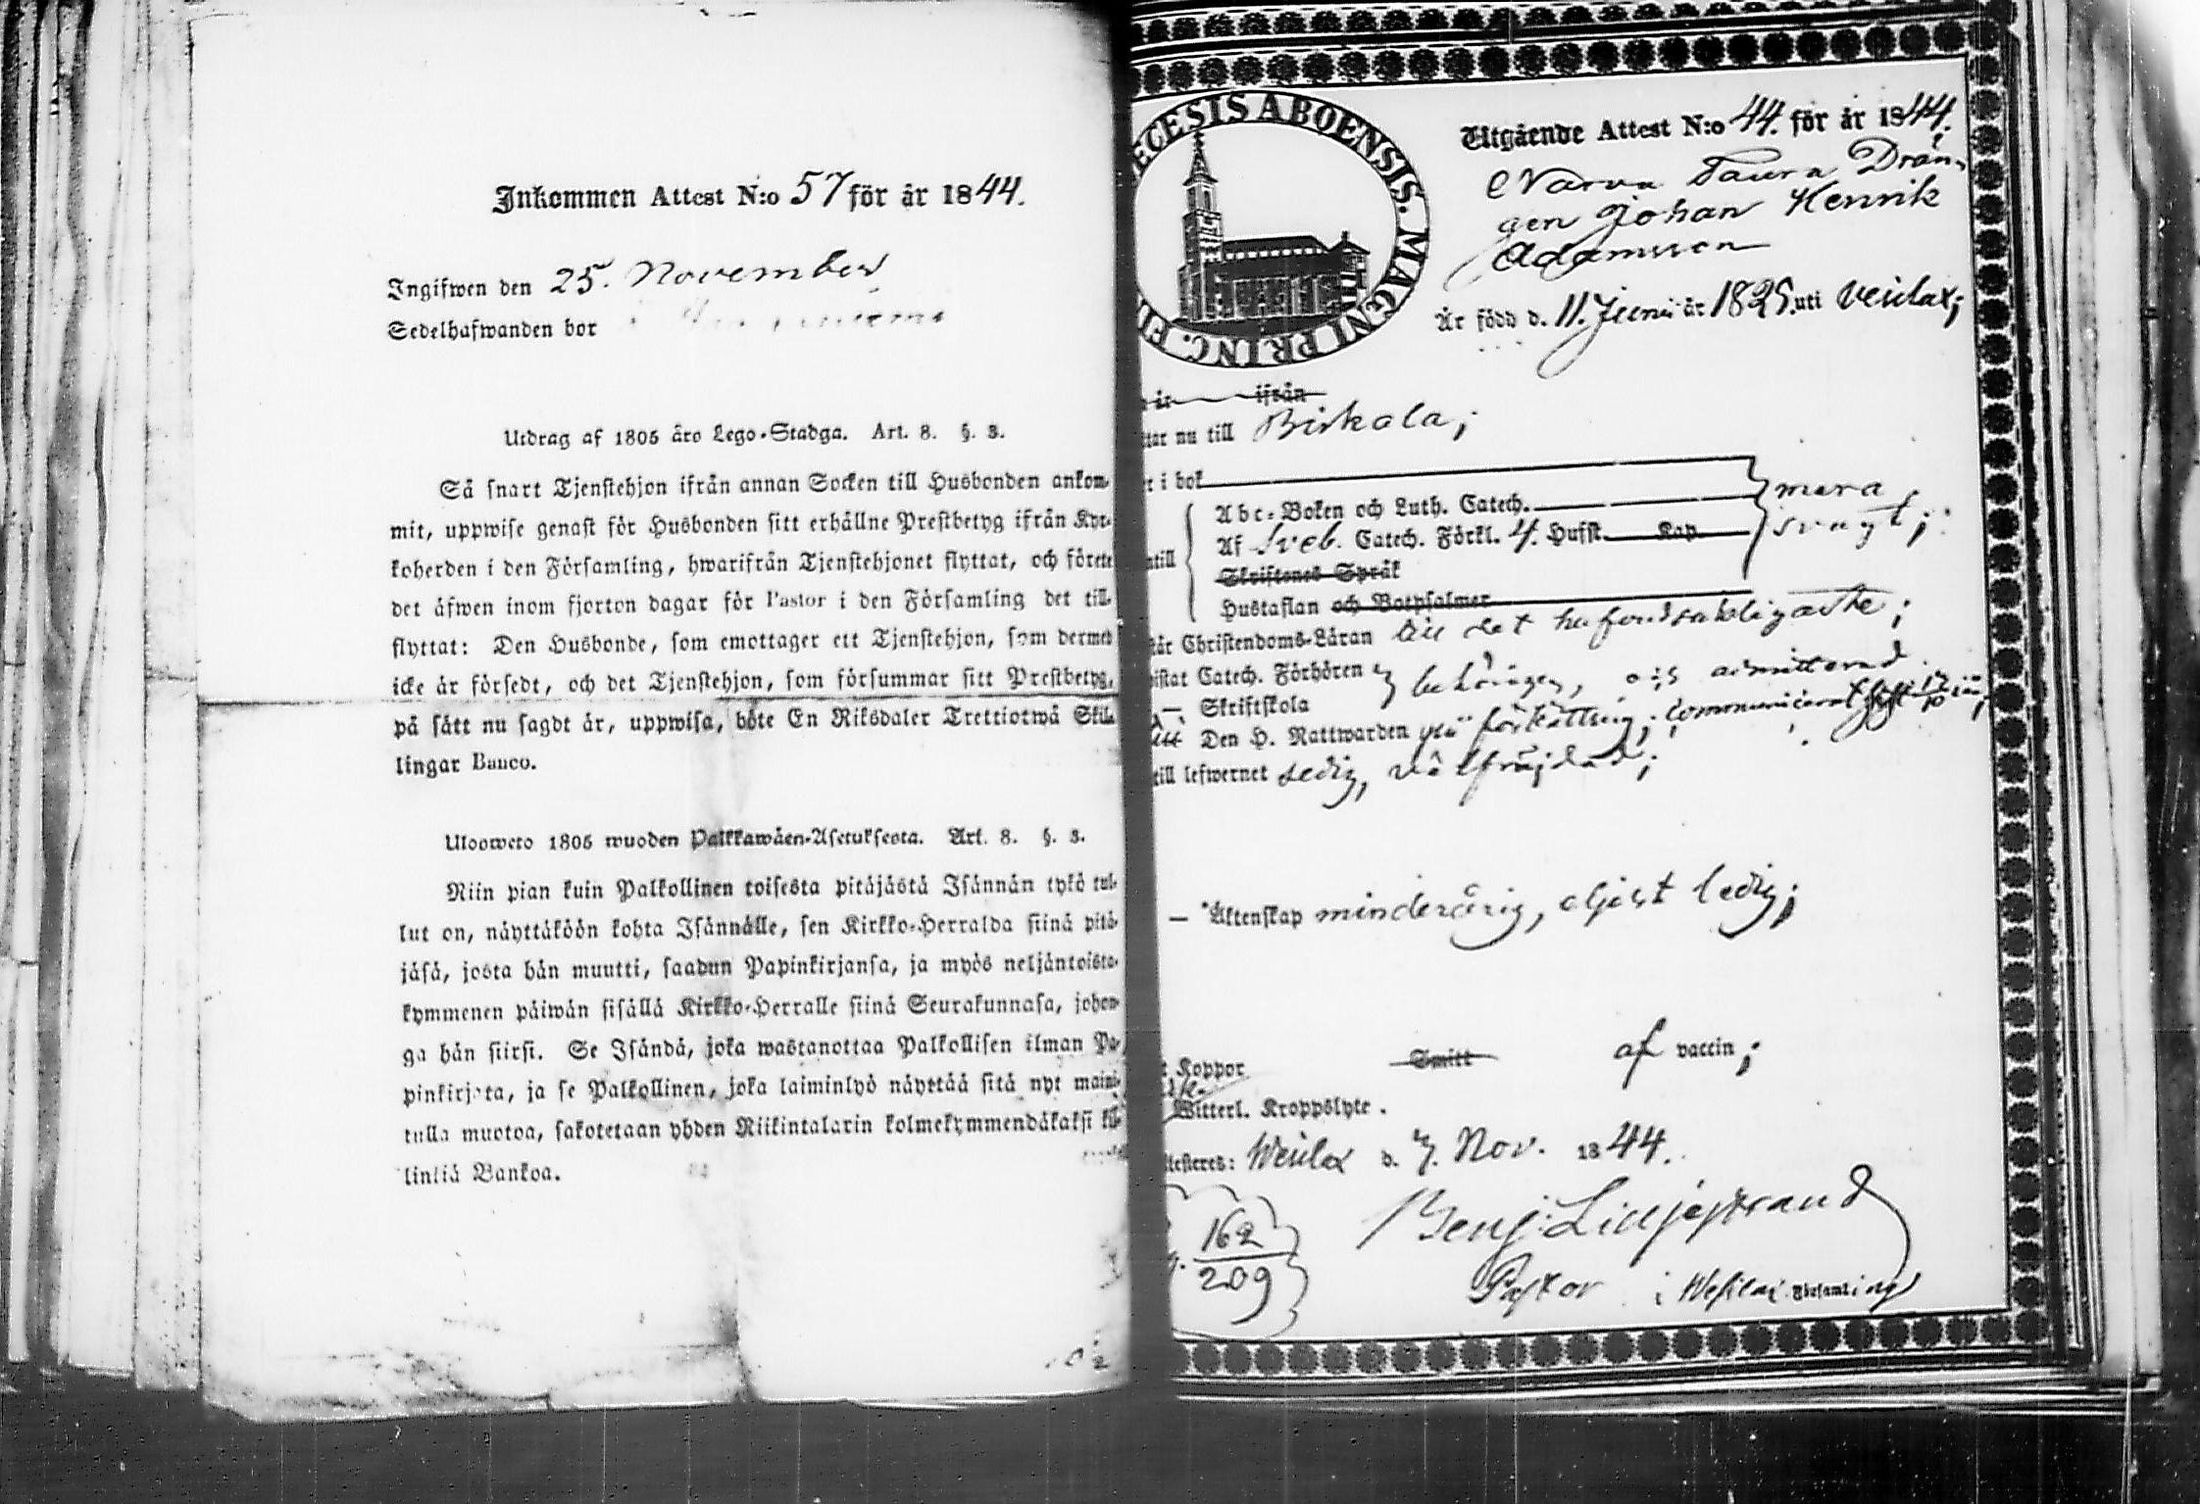 Inkommen Attest N:o 57 för år 1844.
Ingifwen den 25. November
Sedelhafwanden bor
Utdrag af 1805 åro Lego-Stadga. Art. 8. §. 3.
Så snart Tjenstehjon ifrån annan Socken till Husbonden ankom-
mit, uppwise genast för Husbonden sitt erhållne Prestbetyg ifrån Kyr-
koherden i den Församling, hwarifrån Tjenstehjonet flyttat, och förete
det äfwen inom fjorton dagar för Pastor i den Församling det till-
flyttat: Den Husbonde, som emottager ett Tjenstehjon, som dermed
icke är försedt, och det Tjenstehjon, som försummar sitt Prestbetyg,
på sått nu sagdt är, uppwisa, böte En Riksdaler Trettiotwå Skil-
lingar Banco.
Ulosweto 1805 wuoden Palkkawäen-Asetuksesta. Art. 8. §. 3.
Niin pian kuin Palkollinen toisesta pitäjästä Isännän tykö tul-
lut on, näyttäköön kohta Isännälle, sen Kirkko-Herralda siinä pitä-
jäsä, josta hän muutti, saadun Papinkirjansa, ja myös neljäntoista-
kymmenen päiwän sisällä Kirkko-Herralle siinä Seurakunnasa, johon-
ga hän siirsi. Se Isändä, joka wastanottaa Palkollisen ilman Pa-
pinkirjata, ja se Palkollinen, joka laiminlyö näyttää sitä nyt maini-
tulla muotoa, sakotetaan yhden Riikintalarin kolmekymmendäkaksi kil-
linkiä Bankoa.
ECESIS ABOENSIS. MAGNI PRINC. FI
Utgående Attest N:o 44. för år 1844.
Drän-
gen Johan Henrik
Adamsson
Är född d. 11. Juni år 1825. uti Wesilax;
år ifrån
ttar nu till Birkala;
t i bok
Abc-Boken och Luth. Catech. mera
Af Sveb. Catech. Förkl. 4. Hufst. Kap svagt;
ntill
Skriftenes Språk
Hustaflan och Botpsalmer
tår Christendoms-Läran till det hufvudsakligaste;
istat Catech. Förhören behörigen, och admitterad
— Skriftskola
Den H. Nattwarden communicerat
till lefwernet ledig, välfräjdad;
— Äktenskap minderårig, eljest ledig;
t Koppor Smitt af vaccin;
Witterl. Kroppslyte.
ttesteres: Wesilax d. 7. Nov. 1844.
Benj. Liljestrand
Pastor i Wesilax Församling
162
209